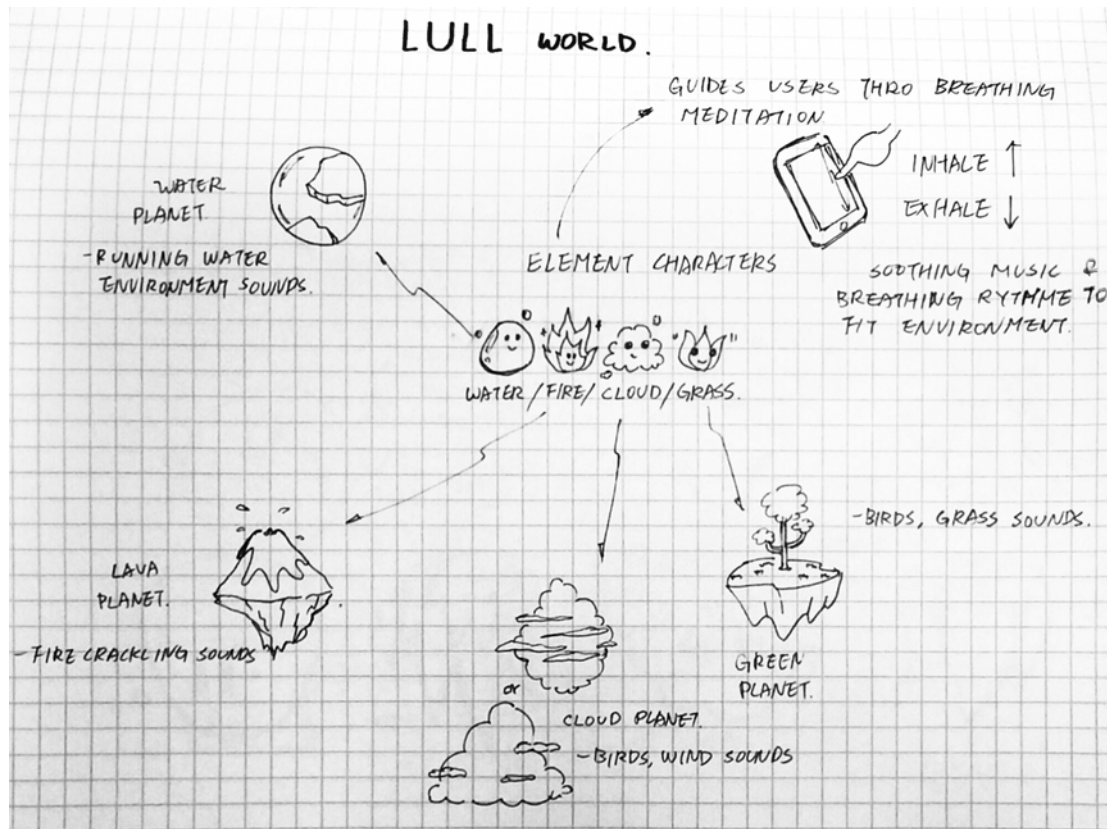 LULL WORLD.
GUIDES USERS THRO BREATHING
MEDITATION
INHALE ↑
EXHALE ↓
SOOTHING MUSIC &
BREATHING RYTHME TO
FIT ENVIRONMENT.
WATER
PLANET
-RUNNING WATER
ENVIRONMENT SOUNDS.
ELEMENT CHARACTERS
WATER/FIRE/CLOUD/GRASS.
LAVA
PLANET.
-FIRE CRACKLING SOUNDS
or
CLOUD PLANET.
-BIRDS, WIND SOUNDS
-BIRDS, GRASS SOUNDS.
GREEN
PLANET.